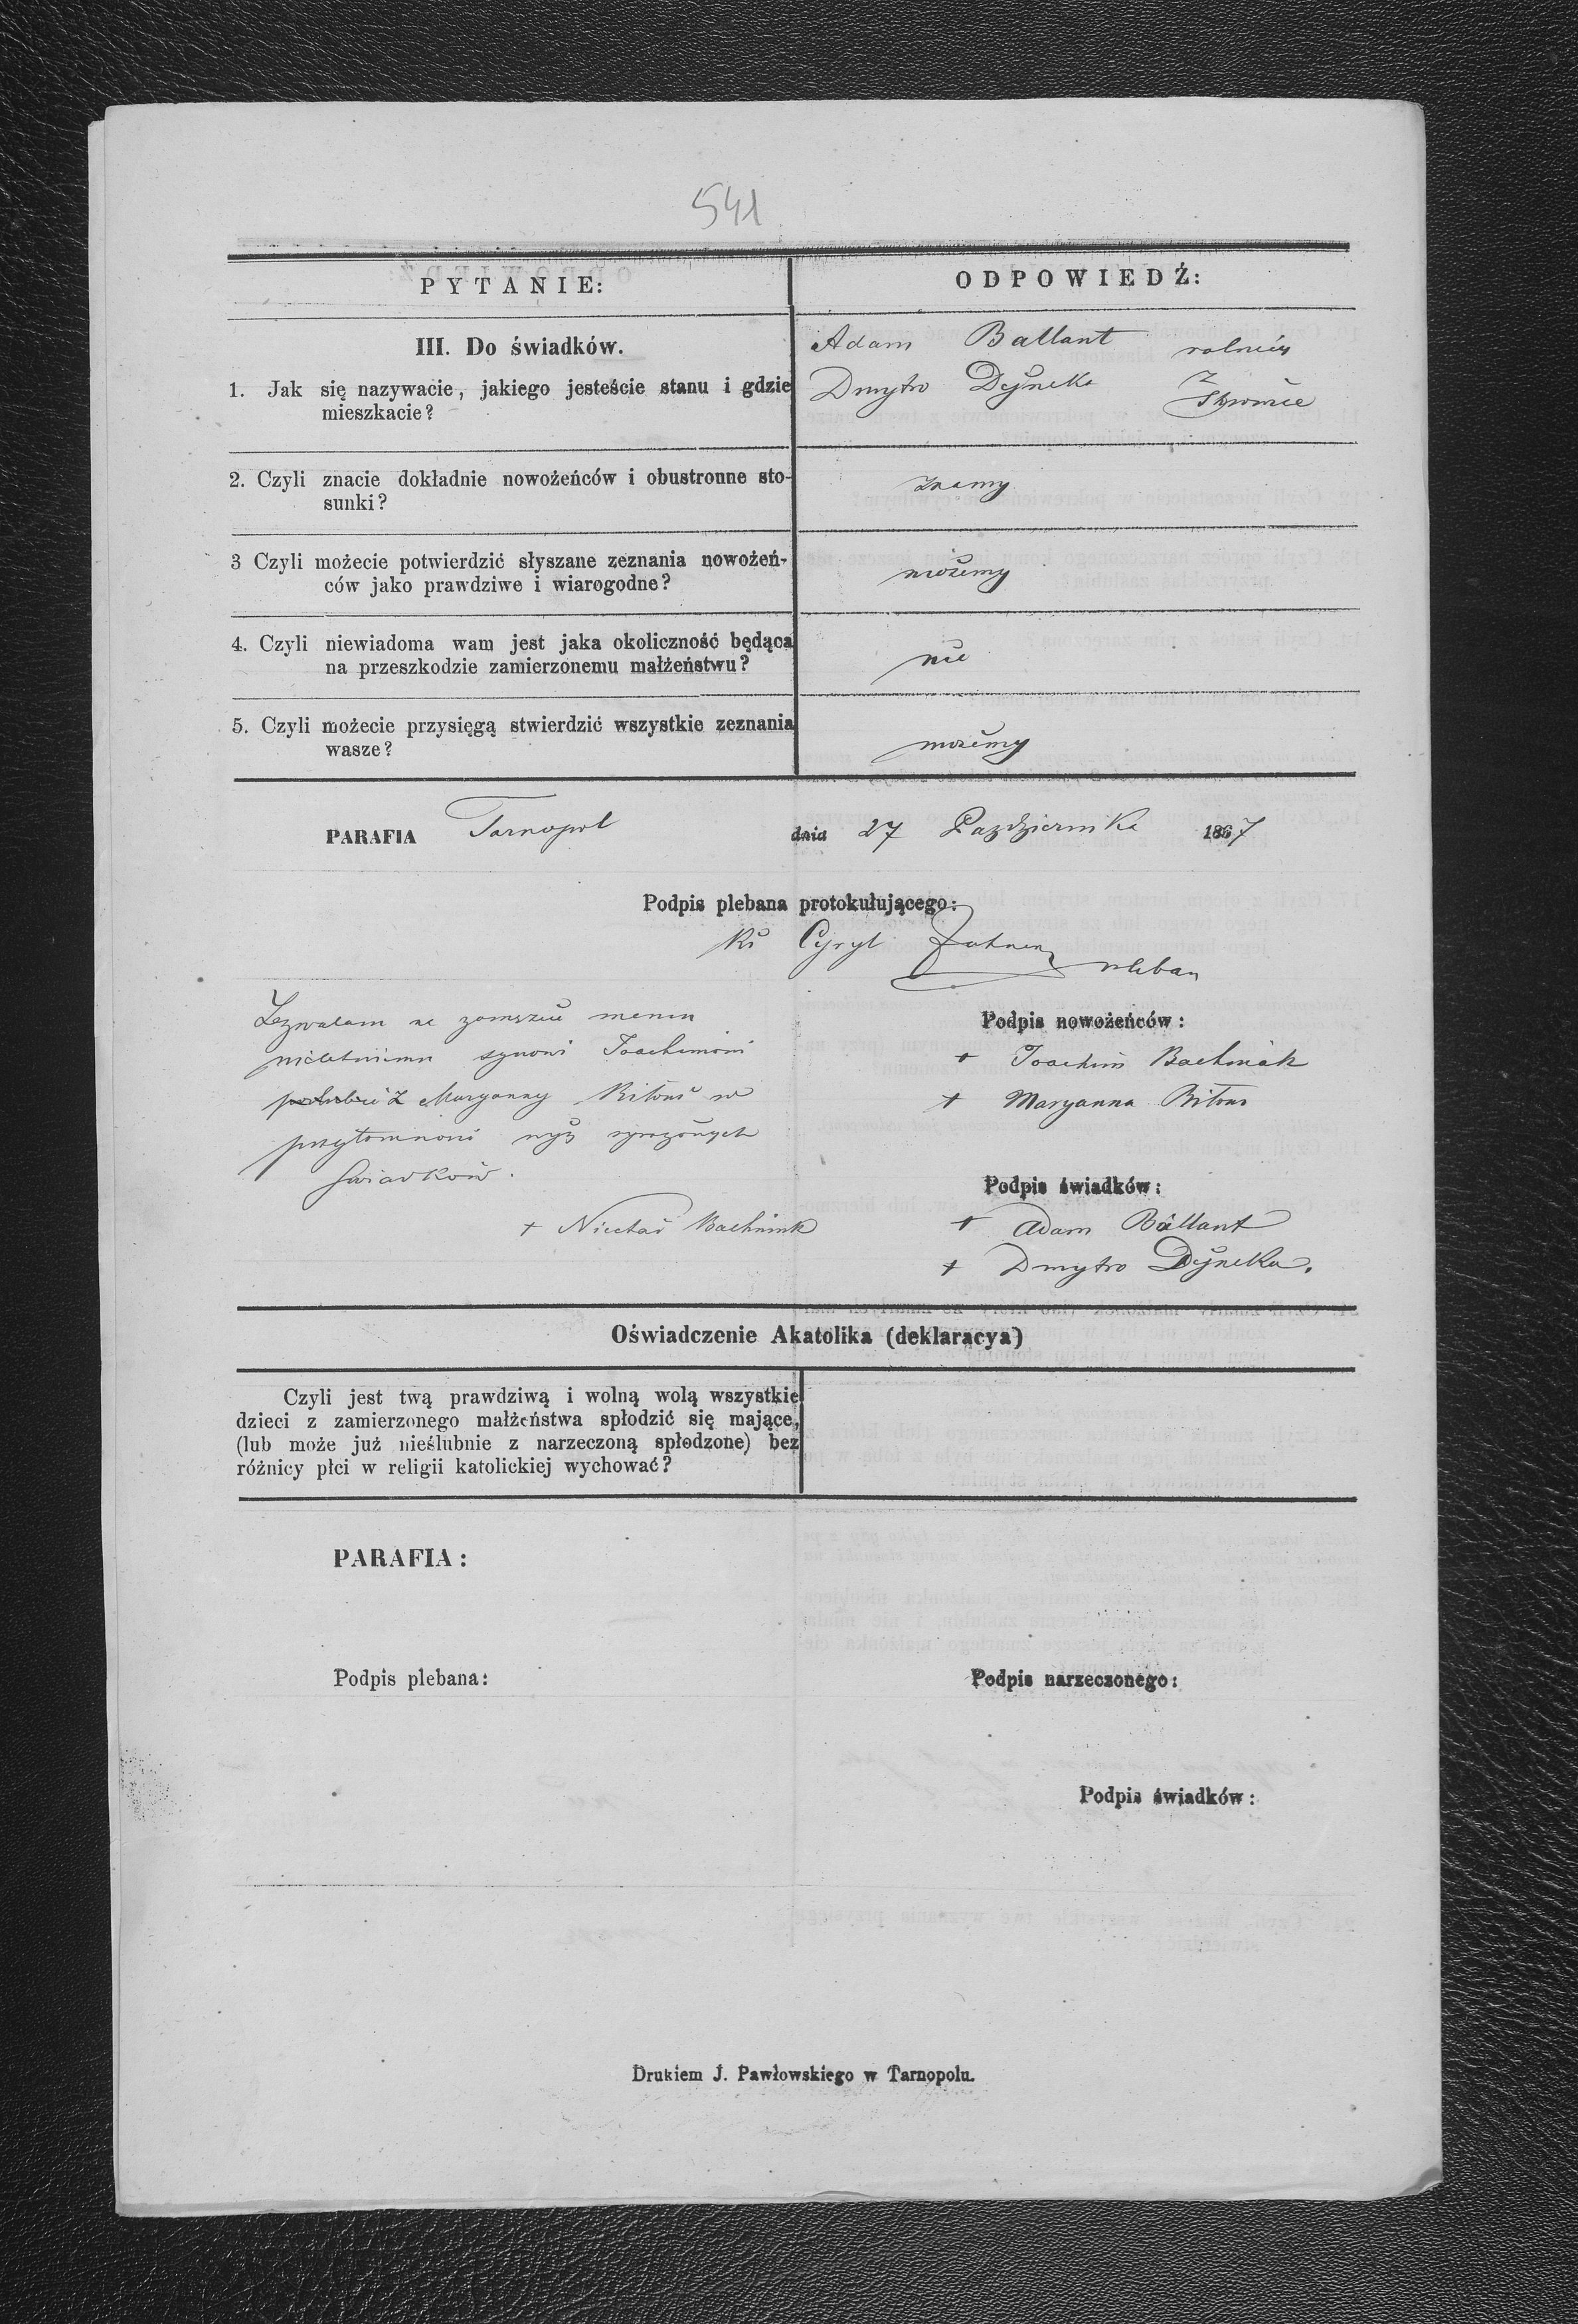 541
PYTANIE:
ODPOWIEDŹ:
III. Do świadków.
1. Jak się nazywacie, jakiego jesteście stanu i gdzie
mieszkacie?
Adam Ballant rolnicy
Dmytro Dyneka z
2. Czyli znacie dokładnie nowożeńców i obustronne sto-
sunki?
znamy
3 Czyli możecie potwierdzić słyszane zeznania nowożeń-
ców jako prawdziwe i wiarogodne?
możemy
4. Czyli niewiadoma wam jest jaka okoliczność będąca
na przeszkodzie zamierzonemu małżeństwu?
nie
5. Czyli możecie przysięgą stwierdzić wszystkie zeznania
wasze?
możemy
PARAFIA Tarnopol dnia 27 Pazdziernika 1867
Podpis plebana protokułującego:
Ks Cyryl pleban
Zezwalam na
synowi Joachimowi
z Maryanny w
świadków.
+ Bachniak
Podpis nowożeńców:
+ Joachim Bachniak
+ Maryanna
Podpis świadków:
+ Adam Ballant
+ Dmytro Dyneka.
Oświadczenie Akatolika (deklaracya)
Czyli jest twą prawdziwą i wolną wolą wszystkie
dzieci z zamierzonego małżeństwa spłodzić się mające,
(lub może już nieślubnie z narzeczoną spłodzone) bez
różnicy płci w religii katolickiej wychować?
PARAFIA:
Podpis plebana:
Podpis narzeczonego:
Podpis świadków:
Drukiem J. Pawłowskiego w Tarnopolu.